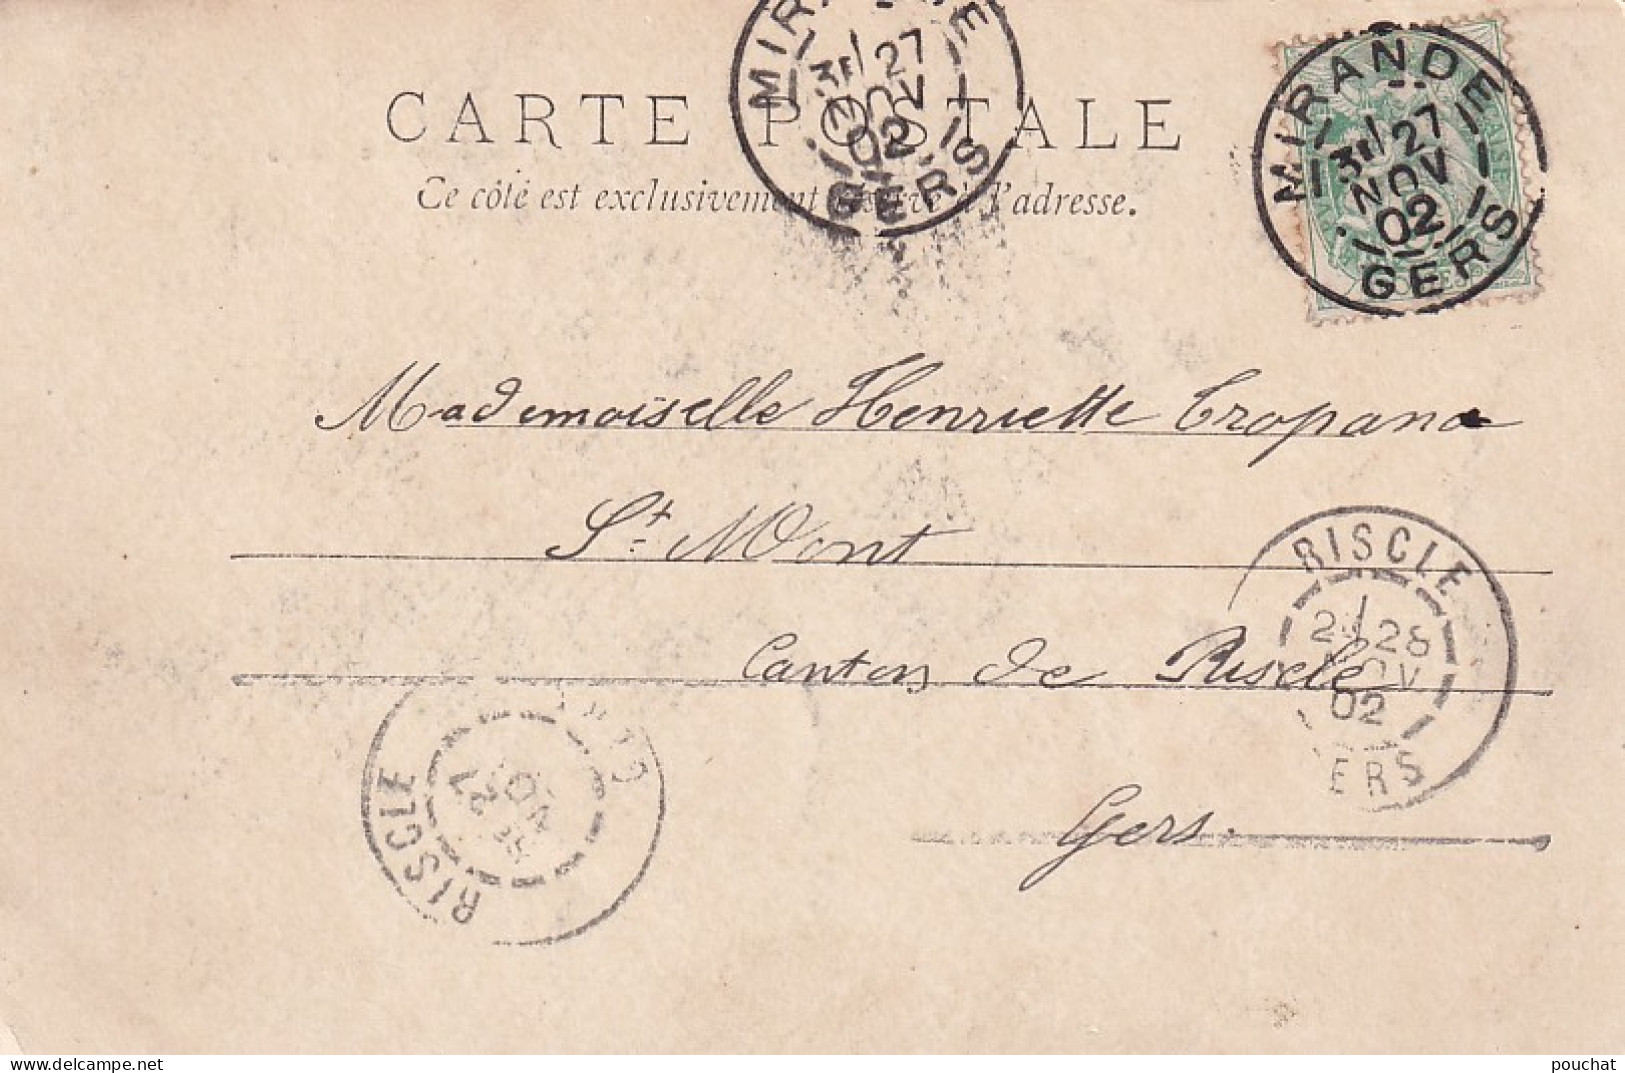 CARTE POSTALE
Ce côté est exclusivement réservé à l'adresse.
MIRANDE
3E 27
NOV
02
GERS
MIRANDE
3E 27
NOV
02
GERS
Mademoiselle Henriette Tropana
St. Mont
Canton de Riscle
Gers.
RISCLE
2E 28
NOV
02
GERS
RISCLE
27
NOV
delcampe.net
pouchat